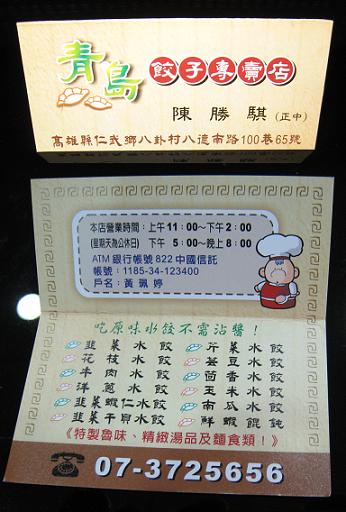 青島餃子專賣店
陳勝騏(正中)
高雄縣仁武鄉八卦村八德南路100巷65號
本店營業時間：上午11：00～下午2：00
(星期天為公休日) 下午 5：00～晚上8：00
ATM 銀行帳號 822 中國信託
帳號：1185-34-123400
戶名：黃珮婷
吃原味水餃不需沾醬！
韭菜水餃 芹菜水餃
花枝水餃 芸豆水餃
牛肉水餃 茴香水餃
洋蔥水餃 玉米水餃
韭菜蝦仁水餃 南瓜水餃
韭菜干貝水餃 鮮蝦餛飩
《特製魯味、精緻湯品及麵食類！》
07-3725656